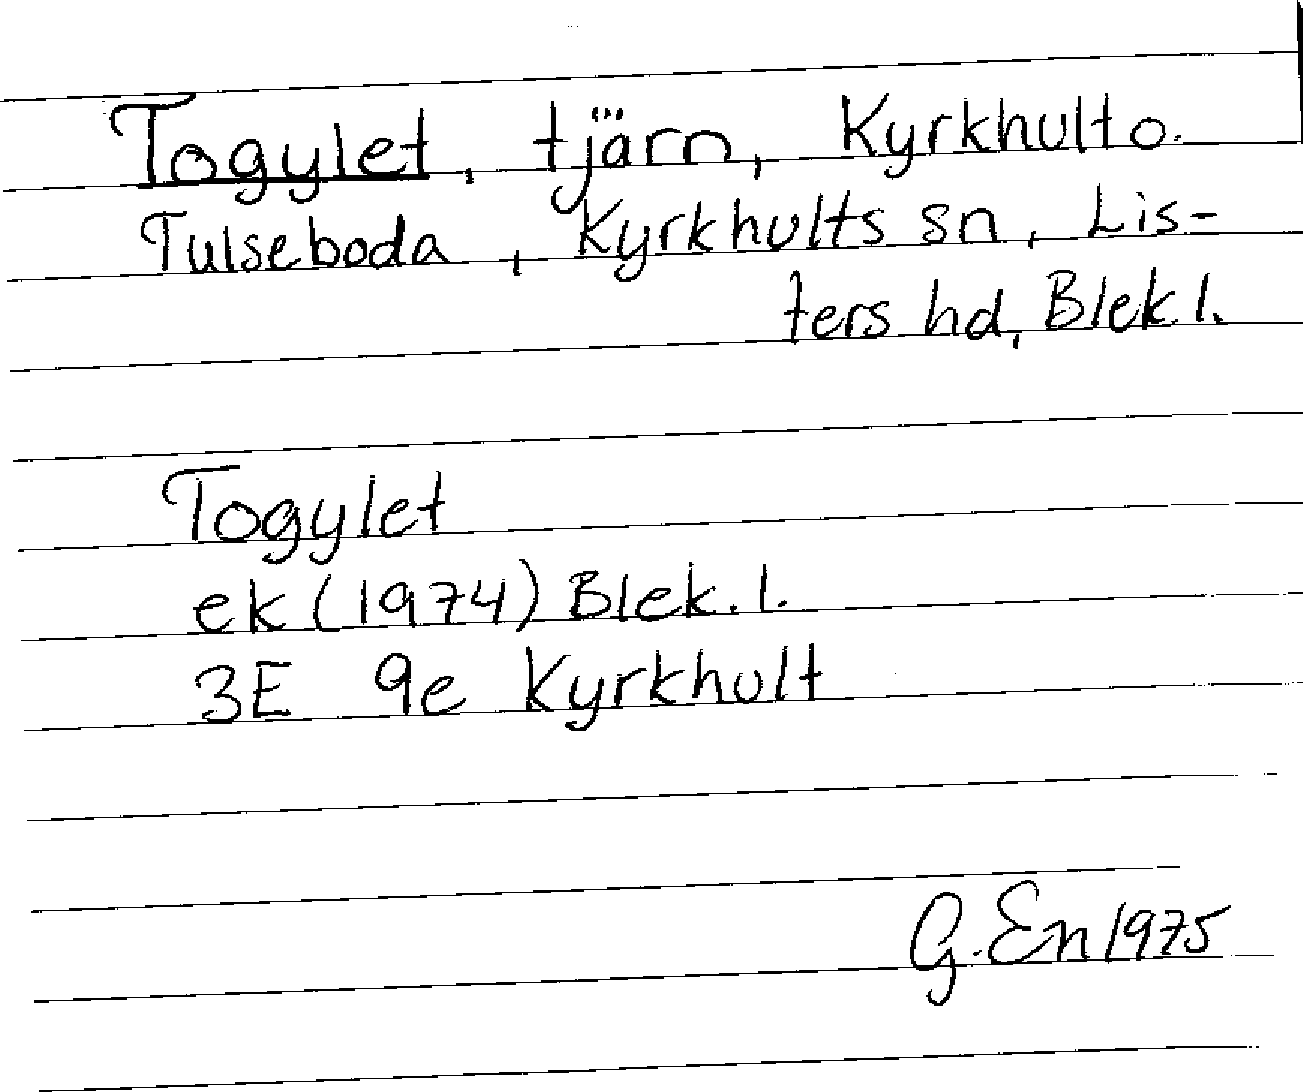 Togylet, tjärn, Kyrkhult o.
Tulseboda, Kyrkhults sn, Lis-
ters hd, Blek.l.
Togylet
ek (1974) Blek.l.
3E 9e Kyrkhult
G. En 1975